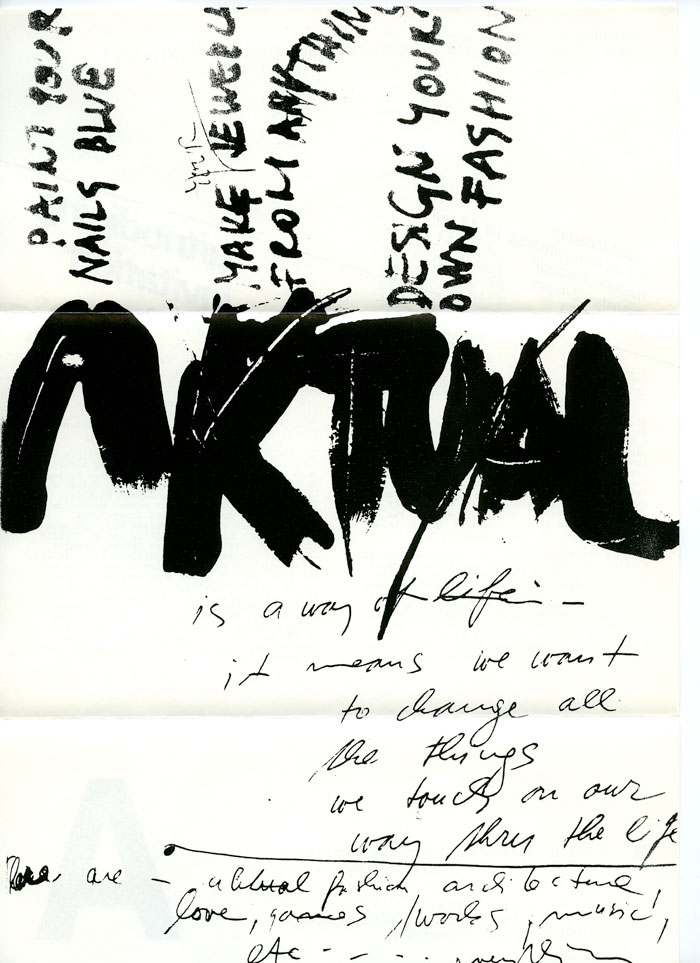 PAINT YOUR
NAILS BLUE
MAKE JEWELL
FROM ANYTHING
DESIGN YOUR
OWN FASHION
AKTUAL
is a way of life –
it means we want
to change all
the things
we touch on our
way thru the life
are – fashion architecture,
love, games, works, music,
etc - - - .